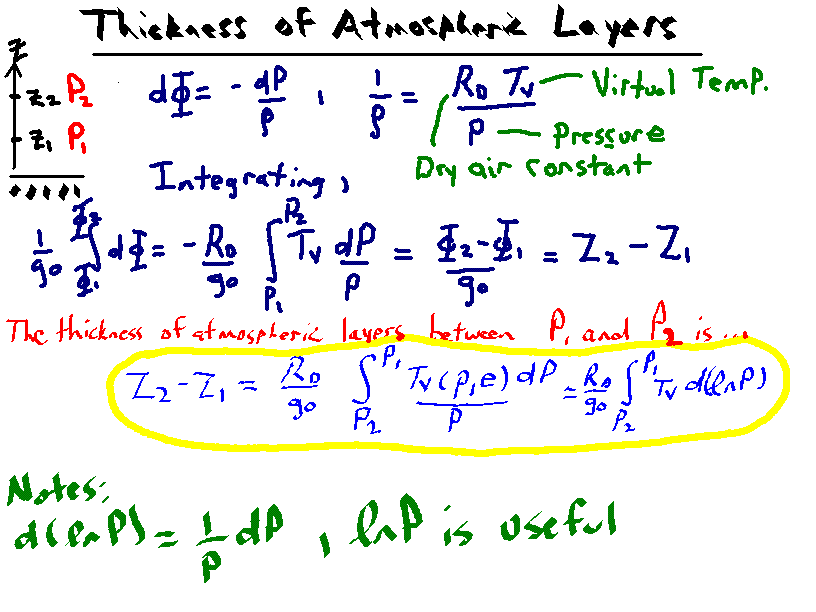 Thickness of Atmospheric Layers
z
z₂ P₂
z₁ P₁
dΦ = - dP/ρ , 1/ρ = R_D T_v / P
Virtual Temp.
Pressure
Dry air constant
Integrating,
1/g₀ ∫_{Φ₁}^{Φ₂} dΦ = -R_D/g₀ ∫_{P₁}^{P₂} T_v dP/P = (Φ₂-Φ₁)/g₀ = Z₂ - Z₁
The thickness of atmospheric layers between P₁ and P₂ is...
Z₂-Z₁ = R_D/g₀ ∫_{P₂}^{P₁} T_v(P,e) dP / P = R_D/g₀ ∫_{P₂}^{P₁} T_v d(lnP)
Notes:
d(lnP) = 1/P dP , lnP is useful